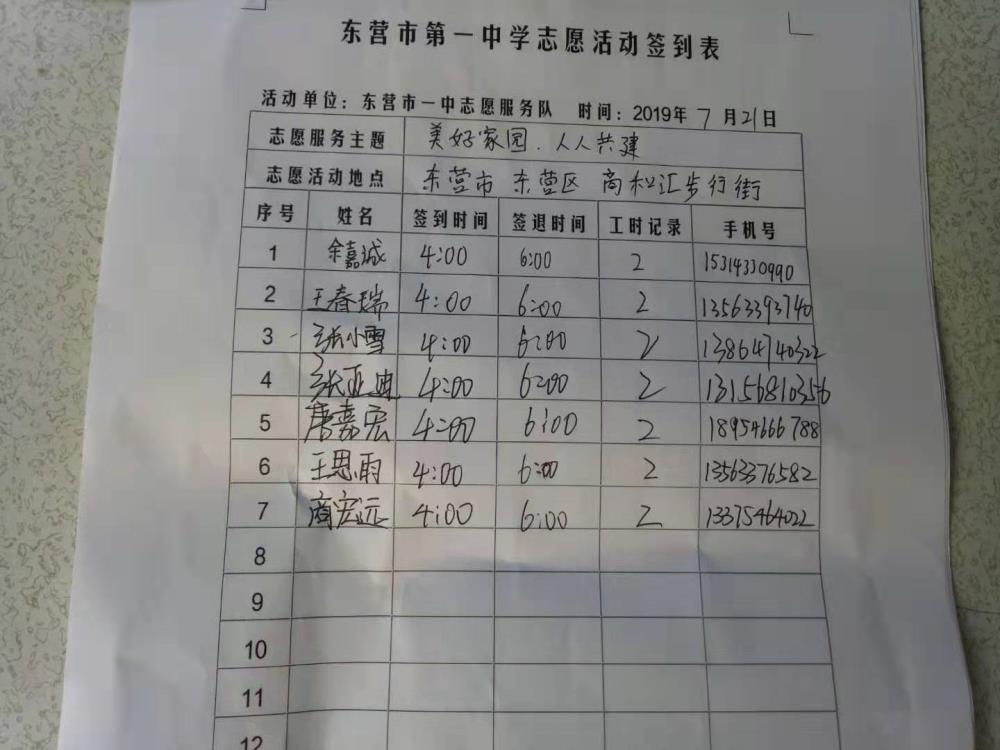 东营市第一中学志愿活动签到表
活动单位：东营市一中志愿服务队 时间：2019年 7 月 21 日
志愿服务主题 美好家园．人人共建
志愿活动地点 东营市 东营区 商和汇步行街
序号 姓名 签到时间 签退时间 工时记录 手机号
1 余嘉诚 4:00 6:00 2 15314330990
2 王春瑞 4:00 6:00 2 13563393740
3 张小雪 4:00 6:00 2 13864740322
4 张亚迪 4:00 6:00 2 13156810356
5 唐嘉宏 4:00 6:00 2 18954666788
6 王思雨 4:00 6:00 2 13563376582
7 商宏远 4:00 6:00 2 13375464022
8
9
10
11
12